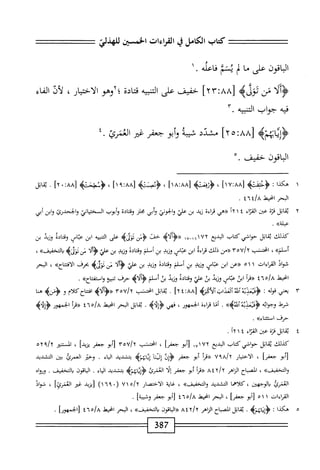 كتاب الكامل في القراءات الخمسين للهذلي
الباقون على ما لم يُسَمَّ فاعلُه .١
﴿أَلَا مَن تَوَلَّى﴾ [٢٣:٨٨] خفيف على التنبيه قتادة ؛٢ وهو الاختيار ، لأنّ الفاء
فيه جواب التنبيه .٣
﴿إِيَّابَهُمْ﴾ [٢٥:٨٨] مشدّد شيبةُ وأبو جعفر غير العُمَريّ .٤
الباقون خفيف .٥
١ هكذا : ﴿خُلِقَتْ﴾ [١٧:٨٨] ، ﴿رُفِعَتْ﴾ [١٨:٨٨] ، ﴿نُصِبَتْ﴾ [١٩:٨٨] ، ﴿سُطِحَتْ﴾ [٢٠:٨٨] . يُقابَل
البحر المحيط ٤٦٤/٨ .
٢ يُقابَل قرّة عين القرّاء ٢١٤أ «هي قراءة زيد بن عليّ والجونيّ وأبي مجلز وقتادة وأيوب السختيانيّ والجحدريّ وابن أبي
عبلة» .
كذلك يُقابَل حواشي كتاب البديع ١٧٢ «﴿أَلَا﴾ خفّ ﴿مَن تَوَلَّى﴾ على التنبيه ابن عبّاس وقتادة وزيد بن
أسلم» ، المحتسب ٣٥٧/٢ «من ذلك قراءةُ ابن عبّاس وزيد بن أسلم وقتادة وزيد بن عليّ ﴿أَلَا مَن تَوَلَّى﴾ بالتخفيف» ،
شواذّ القراءات ٥١١ «عن ابن عبّاس وزيد بن أسلم وقتادة وزيد بن عليّ ﴿أَلَا مَن تَوَلَّى﴾ بحرف الافتتاح» ، البحر
المحيط ٤٦٥/٨ «قرأ ابنُ عبّاس وزيدُ بنُ عليّ وقتادةُ وزيدُ بنُ أسلم ﴿أَلَا﴾ حرف تنبيه واستفتاح» .
٣ يعني قوله : ﴿فَيُعَذِّبُهُ اللهُ الْعَذَابَ الْأَكْبَرَ﴾ [٢٤:٨٨] . يُقابَل المحتسب ٣٥٧/٢ «﴿أَلَا﴾ افتتاح كلام و﴿مَن﴾ هنا
شرط وجوابُه ﴿فَيُعَذِّبُهُ اللهُ﴾» . أمّا قراءة الجمهور ، فهي ﴿إِلَّا﴾ . يُقابَل البحر المحيط ٤٦٥/٨ «قرأ الجمهور ﴿إِلَّا﴾
حرف استثناء» .
٤ يُقابَل قرّة عين القرّاء ٢١٤أ .
كذلك يُقابَل حواشي كتاب البديع ١٧٢ [أبو جعفر] ، المحتسب ٣٥٧/٢ [أبو جعفر يزيد] ، المستنير ٥٢٩/٢
[أبو جعفر] ، الاختيار ٧٩٨/٢ «قرأ أبو جعفر ﴿إِنَّ إِلَيْنَا إِيَّابَهُمْ﴾ بتشديد الياء . وخيّر العمريُّ بين التشديد
والتخفيف» ، المصباح الزاهر ٨٤٢/٢ «قرأ أبو جعفر إلّا العُمَريّ ﴿إِيَّابَهُمْ﴾ بتشديد الياء . الباقون بالتخفيف . ورواه
العُمَريُّ بالوجهين ، كلاهما التشديد والتخفيف» ، غاية الاختصار ٧١٥/٢ (١٦٩٠) [يزيد غير العُمَريّ] ، شواذّ
القراءات ٥١١ [أبو جعفر] ، البحر المحيط ٤٦٥/٨ [أبو جعفر وشيبة] .
٥ هكذا : ﴿إِيَابَهُمْ﴾ . يُقابَل المصباح الزاهر ٨٤٢/٢ «الباقون بالتخفيف» ، البحر المحيط ٤٦٥/٨ [الجمهور] .
387